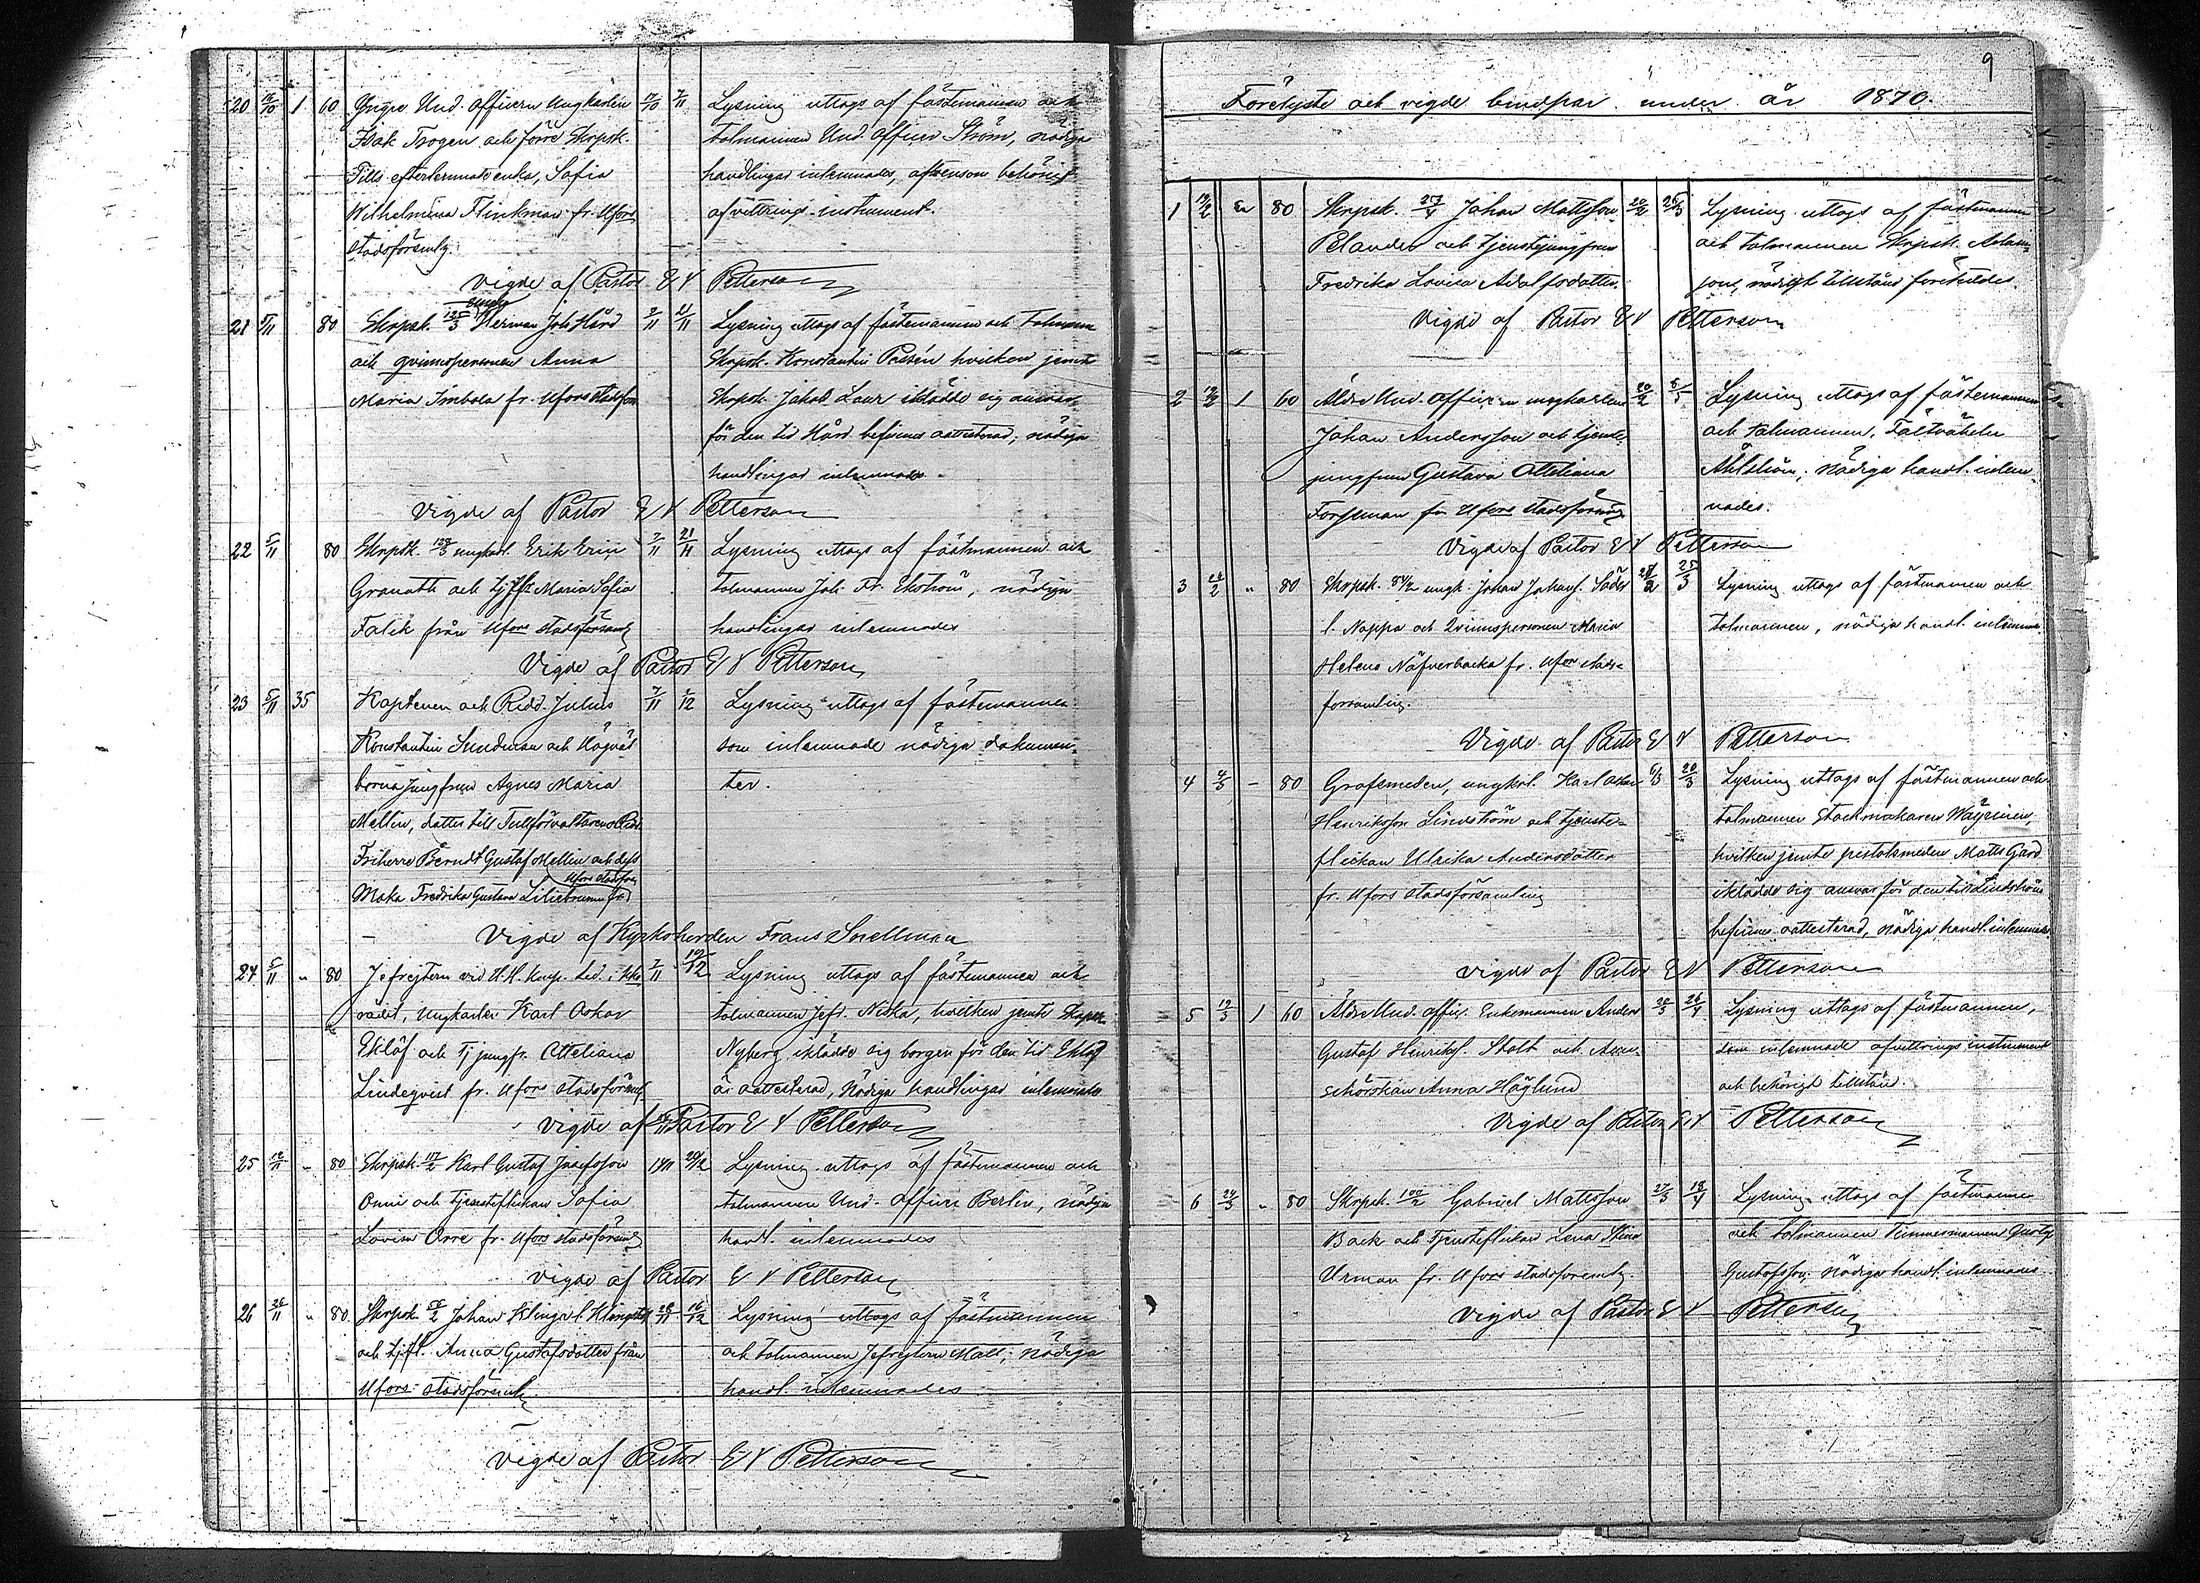 20 16/10 1 60 Yngre Und. officern Ungkarlen 17/10 7/11 Lysning uttogs af fästmannen och
Isak Trogen och förre Skrpsk. talmannen Und. officer Ström, nödiga
Tills efterlemnade enka, Sofia handlingar inlemnades, äfvensom behörigt
Wilhelmina Flinkman fr. Ufors afvittrings instrument.
stadsförsmlg.
Vigde af Pastor E V Petterson
21 5/11 80 Skrpsk. 125/3 Herman Joh. Hård 7/11 21/11 Lysning uttogs af fästemannen och Talmannen
och qvinnspersonen Anna Skrpsk. Konstantin hvilken jemte
Maria Imbola fr. Ufors stadsförs. Skrpsk. Jakob Laur iklädde sig ansvar
för den tid Hård befinnes oattesterad, nödiga
handlingar inlemnades.
Vigde af Pastor E V Petterson
22 5/11 80 Skrpsk. 128/3 ungkarl. Erik Eric 7/11 21/11 Lysning uttogs af fästmannen och
Granath och Maria Sofia talmannen Joh. Fr. Ekström, nödiga
Falik från Ufors stadsförsamlg handlingar inlemnades
Vigde af Pastor E V Petterson
23 5/11 35 Kaptenen och Ridd. Julius 7/11 1/12 Lysning uttogs af fästemannen
Konstantin Sundman och Högväl som inlemnade nödiga dokumen-
borna Jungfrun Agnes Maria ter.
Mellin, dotter till Tullförvaltaren o Ridd.
Friherre Berndt Gustaf Mellin och dess
Ufors stadsförs.
Maka Fredrika Gustava Liliebrunn fr.
Vigde af Kyrkoherden Frans Snellman
24 5/11 " 80 Jefrejtern vid H.K. Komp. led. i 7/11 19/12 Lysning uttogs af fästemannen och
rådet, Ungkarlen Karl Oskar talmannen Jefr. Niska, hvilken jemte Skrpsk.
Eklöf och Tj jungfr. Otteliana Nyberg iklädde sig borgen för den tid Eklöf
Lindeqvist fr. Ufors stadsförsml. är oattesterad, Nödiga handlingar inlemnades
vigde af Pastor E V Petterson
25 12/11 " 80 Skrpsk. 117/2 Karl Gustaf Josefsson 14/11 20/12 Lysning uttogs af fästmannen och
Onni och tjenstflickan Sofia talmannen Und. officer Berlin, nödiga
Lovisa Orre fr. Ufors stadsförsmlg handl. inlemnades
Vigde af Pastor E V Petterson
26 26/11 " 80 Skrpsk. Johan Klinga l. 28/11 16/12 Lysning uttogs af fästmannen
och tjfl. Anna Gustafsdotter från och talmannen Jefrejtern Matt; nödiga
Ufors stadsförsml. handl. inlemnades
Vigde af Pastor E V Petterson
9
Förelyste och vigde brudpar under år 1870.
1 19/2 80 Skrpsk. 27/4 Johan Mattsson 20/2 25/3 Lysning uttogs af fästmannen
Pelander och tjenstejungfrun och talmannen Skrpsk. Adam-
Fredrika Lovisa Adolfsdotter. son, nödigt tillstånd företeddes.
Vigde af Pastor E V Petterson
2 19/2 1 60 Äldre Und. Officeren ungkarlen 20/2 8/5 Lysning uttogs af fästemannen
Johan Andersson och tjenste- och talmannen, Fältväbeln
jungfrun Gustava Otteliana Åhlström; nödiga handl. inlem-
Forsman från Ufors stadsförsmlg nades.
Vigde af Pastor E V Petterson
3 26/2 " 80 Skrpsk. 84/2 ungk. Johan Johans. Söder 27/2 25/3 Lysning uttogs af fästmannen och
l. Nappa och Qvinnspersonen Maria talmannen, nödiga handl. inlemna.
Helena Näfverbacka fr. Ufors stads-
församling.
Vigde af Pastor E V Petterson
4 4/3 – 80 Grofsmeden, ungkrl. Karl Oskar 6/3 20/3 Lysning uttogs af fästmannen och
Henriksson Lindström och tjenste- talmannen Stockmakaren Wäyrinen
flickan Ulrika Andersdotter hvilken jemte pistolsmeden Matts Gård
fr. Ufors Stadsförsamling iklädde sig ansvar för den tid Lindström
befinnes oattesterad, nödiga handl. inlemnad.
Vigde af Pastor E V Petterson
5 19/3 1 60 Äldre Und. offic. Enkemannen Anders 20/3 26/4 Lysning uttogs af fästmannen,
Gustaf Henriks. Stolt och Acc- som inlemnade afvittrings instrument
schörskan Anna Höglund och behörigt tillstån.
Vigde af Pastor E V Petterson
6 26/3 " 80 Skrpsk. 100/2 Gabriel Mattsson 27/3 18/4 Lysning uttogs af fästmannen
Back och Tjenstflickan Lena Stina och talmannen Timmermannen Gustaf
Urman fr. Ufors stadsförsmlg. Gustafsson. nödiga handl. inlemnades.
Vigde af Pastor E V Petterson